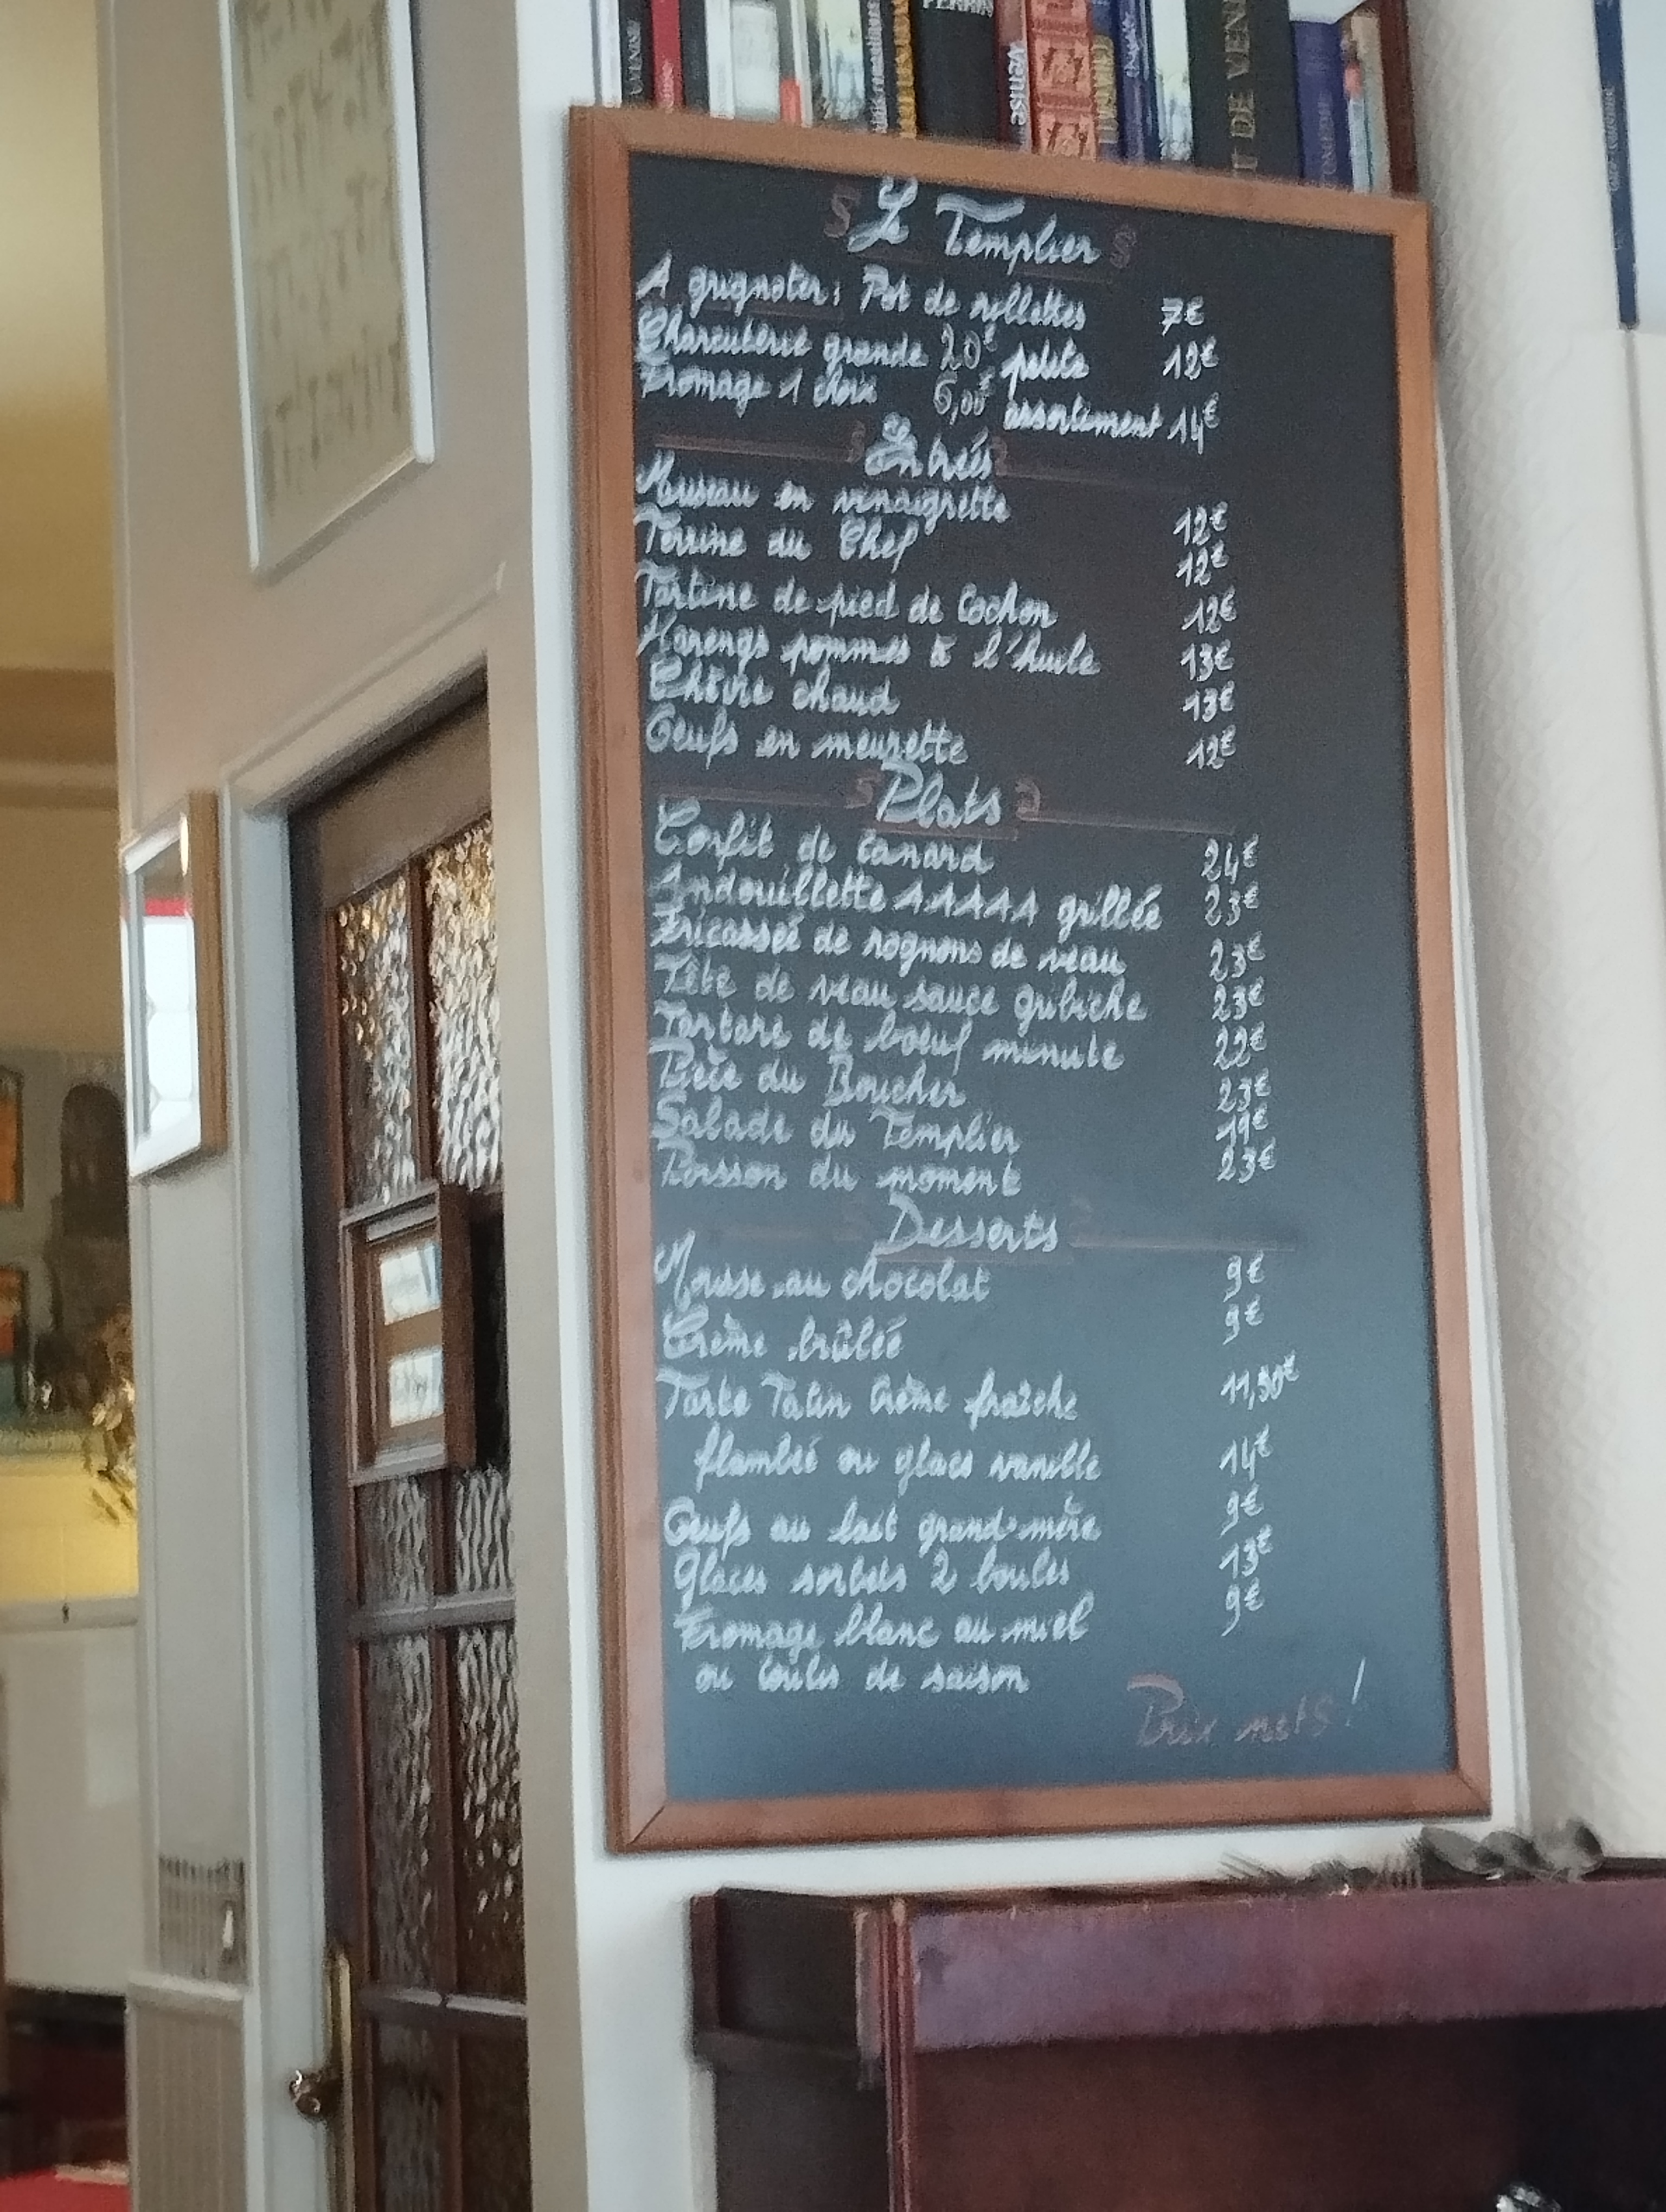 VENISE
PERRIN
Venise
T DE VENI
Le Templier
A grignoter : Pot de rillettes 7€
Charcuterie grande 20€ petite 12€
Fromage 1 choix 6,00€ assortiment 14€
Entrées
Museau en vinaigrette 12€
Terrine du Chef 12€
Tartine de pied de Cochon 12€
Harengs pommes à l'huile 13€
Chèvre chaud 13€
Oeufs en meurette 12€
Plats
Confit de canard 24€
Andouillette AAAAA grillée 23€
Fricassée de rognons de veau 23€
Tête de veau sauce gribiche 23€
Tartare de boeuf minute 22€
Pièce du Boucher 23€
Salade du Templier 19€
Poisson du moment 23€
Desserts
Mousse au chocolat 9€
Crème brûlée 9€
Tarte Tatin Crème fraîche 11,50€
flambée ou glace vanille 14€
Oeufs au lait grand-mère 9€
Glaces sorbets 2 boules 13€
Fromage blanc au miel 9€
ou coulis de saison
Prix nets !